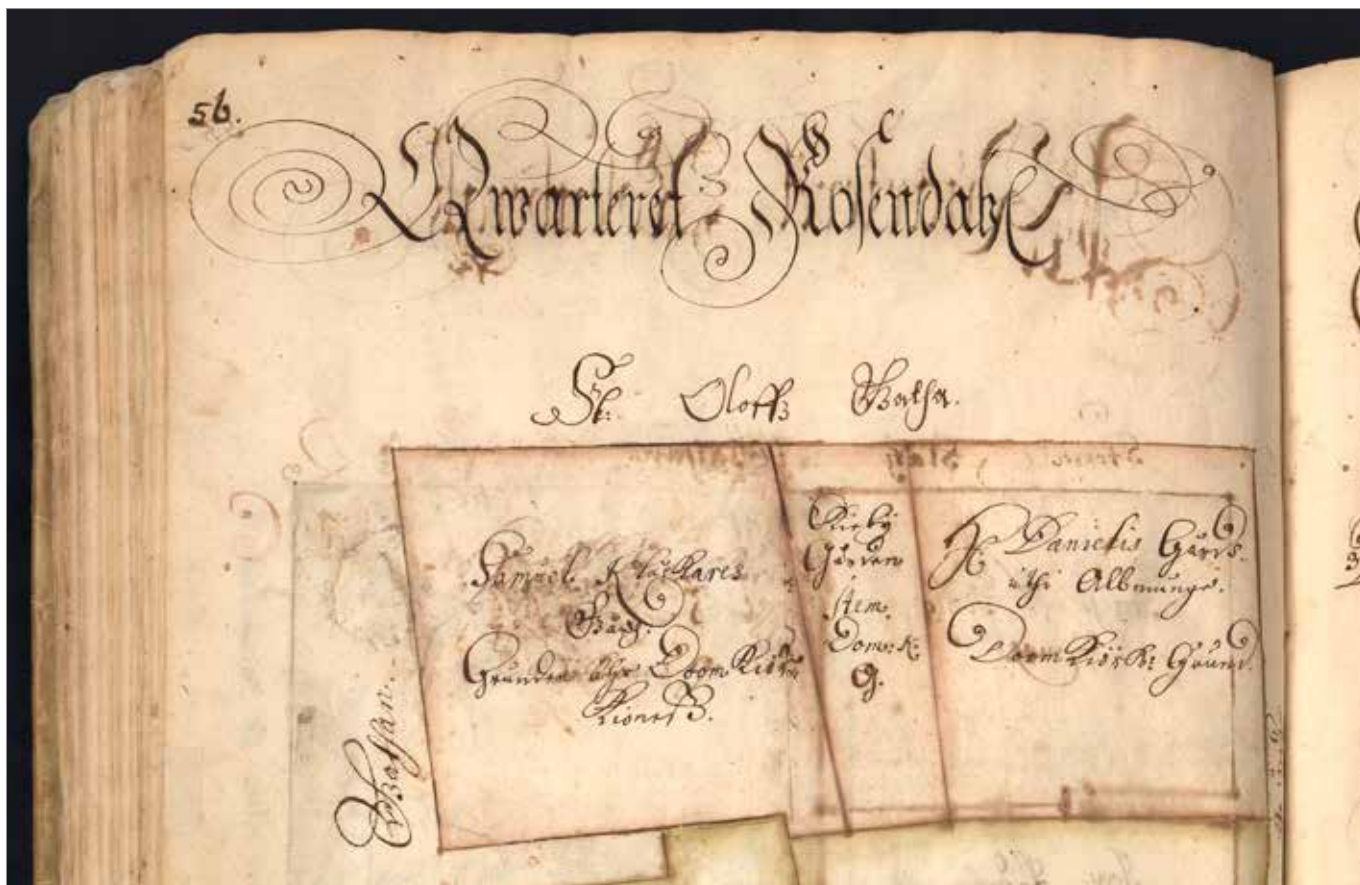 56.
Qwarteret Rosendahl
St: Oloffz Gatha.
Samuel Klåckares
Gård.
Grunden ähr Doom Kiör
Kiones.
Kiörby
Gården
item
Dom: K:
G.
H. Danielis Gård.
uthi Allmunge.
Doom Kiörk: Grund.
Gathan.